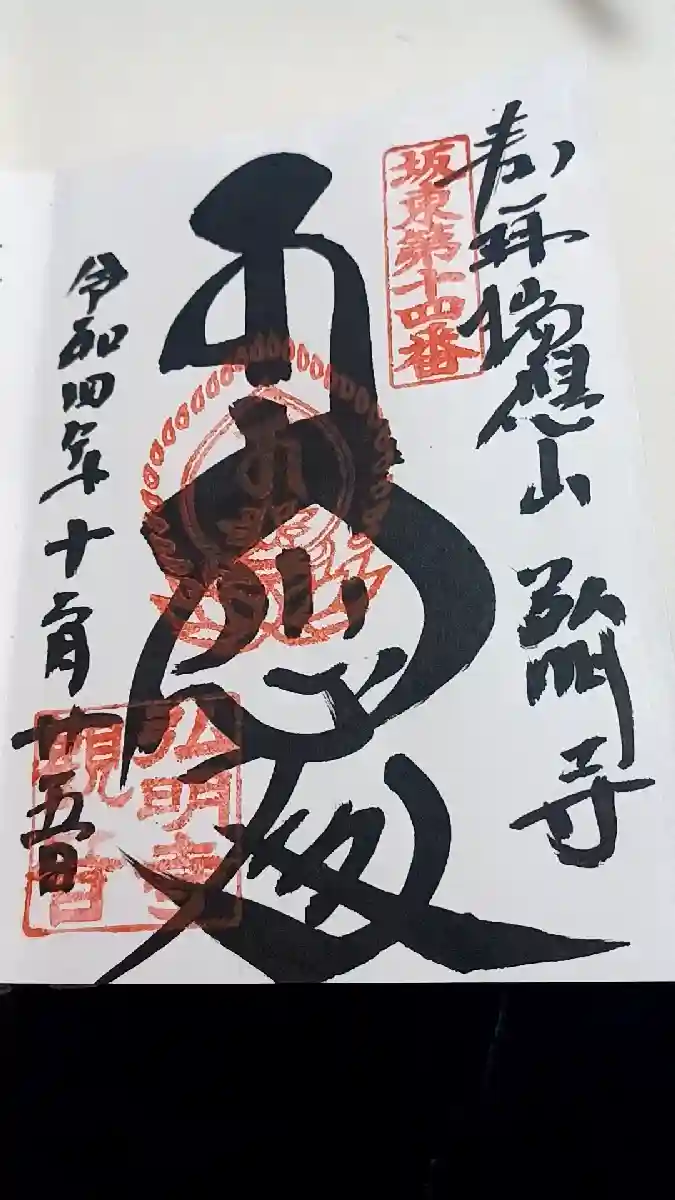 奉拝 瑞應山 弘明寺
坂東第十四番
大悲殿
令和四年十一月廿五日
弘明寺
観音